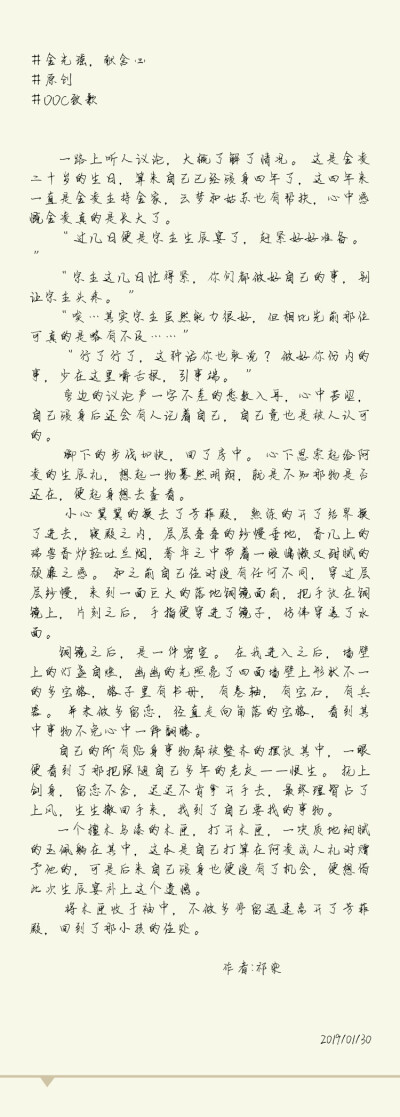 #金光瑶，献舍心
#原创
#OOC致歉
一路上听人议论，大概了解了情况。这是金凌
二十岁的生日，算来自己已经殒身四年了，这四年来
一直是金凌主持金家，云梦和姑苏也有帮扶，心中感
慨金凌真的是长大了。
“过几日便是宗主生辰宴了，赶紧好好准备。
”
“宗主这几日忙得紧，你们都做好自己的事，别
让宗主头疼。”
“唉…其实宗主虽然能力很好，但相比先前那位
可真的是略有不及……”
“行了行了，这种话你也敢说？做好你份内的
事，少在这里嚼舌根，引事端。”
旁边的议论声一字不差的悉数入耳，心中苦涩，
自己殒身后还会有人记着自己，自己竟也是被人认可
的。
脚下的步伐加快，回了房中。心下思索起给阿
凌的生辰礼，想起一物蓦然明朗，就是不知那物是否
还在，便起身想去查看。
小心翼翼的摸去了芳菲殿，熟练的开了结界摸
了进去，寝殿之内，层层叠叠的纱幔垂地，香几上的
瑞兽香炉轻吐兰烟，奢华之中带着一股慵懒又甜腻的
颓靡之感。和之前自己住时没有任何不同，穿过层
层纱幔，来到一面巨大的落地铜镜面前，把手放在铜
镜上，片刻之后，手指便穿进了镜子，仿佛穿透了水
面。
铜镜之后，是一件密室。在我进入之后，墙壁
上的灯盏自燃，幽幽的光照亮了四面墙壁上形状不一
的多宝格，格子里有书册，有卷轴，有宝石，有兵
器。并未做多留恋，径直走向角落的宝格，看到其
中事物不免心中一阵翻腾。
自己的所有贴身事物都被整齐的摆放其中，一眼
便看到了那把跟随自己多年的老友——恨生。抚上
剑身，留恋不舍，迟迟不肯拿开手去，最终理智占了
上风，生生撤回手来，找到了自己要找的事物。
一个檀木乌漆的木匣，打开木匣，一块质地细腻
的玉佩躺在其中，这本是自己打算在阿凌成人礼时赠
予他的，可是后来自己殒身也便没有了机会，便想借
此次生辰宴补上这个遗憾。
将木匣收于袖中，不做多哥留迅速离开了芳菲
殿，回到了那小孩的住处。
作者:祁染
2019/01/30